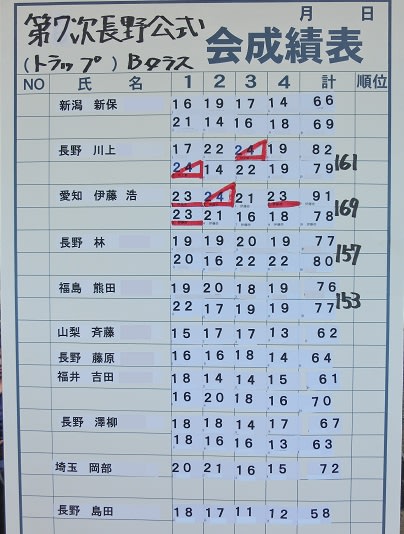 第7次長野公式 月 日
(トラップ) Bクラス 会成績表
NO 氏 名 1 2 3 4 計 順位
新潟 新保 16 19 17 14 66
21 14 16 18 69
長野 川上 17 22 24 19 82
24 14 22 19 79 161
愛知 伊藤 浩 23 24 21 23 91
23 21 16 18 78 169
長野 林 19 19 20 19 77
20 16 22 22 80 157
福島 熊田 19 20 18 19 76
22 17 19 19 77 153
山梨 斉藤 15 17 17 13 62
長野 藤原 16 16 18 14 64
福井 吉田 18 14 14 15 61
16 20 18 16 70
長野 澤柳 18 18 14 17 67
18 16 16 13 63
埼玉 岡部 20 21 16 15 72
長野 島田 18 17 11 12 58